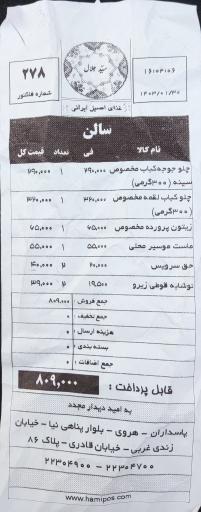 ۲۷۸
شماره فاکتور
سید جلال
۱۶:۰۴:۰۶
۱۴۰۳/۰۱/۳۰
غذای اصیل ایرانی
سالن
نام کالا فی تعداد قیمت کل
چلو جوجه کباب مخصوص سینه (۳۰۰گرمی) ۲۹۰,۰۰۰ ۱ ۲۹۰,۰۰۰
چلو کباب لقمه مخصوص (۳۰۰گرمی) ۳۶۰,۰۰۰ ۱ ۳۶۰,۰۰۰
زیتون پرورده مخصوص ۶۵,۰۰۰ ۱ ۶۵,۰۰۰
ماست موسیر محلی ۵۵,۰۰۰ ۱ ۵۵,۰۰۰
حق سرویس ۲۰,۰۰۰ ۲ ۴۰,۰۰۰
نوشابه قوطی زیرو ۱۹,۵۰۰ ۲ ۳۹,۰۰۰
جمع فروش : ۸۰۹,۰۰۰
جمع تخفیف : ۰
هزینه ارسال : ۰
بسته بندی : ۰
جمع اضافات : ۰
قابل پرداخت : ۸۰۹,۰۰۰
به امید دیدار مجدد
پاسداران - هروی - بلوار پناهی نیا - خیابان
زندی غربی - خیابان قادری - پلاک ۸۶
۲۲۳۰۴۷۰۰ - ۲۲۳۰۴۹۰۰
www.hamipos.com